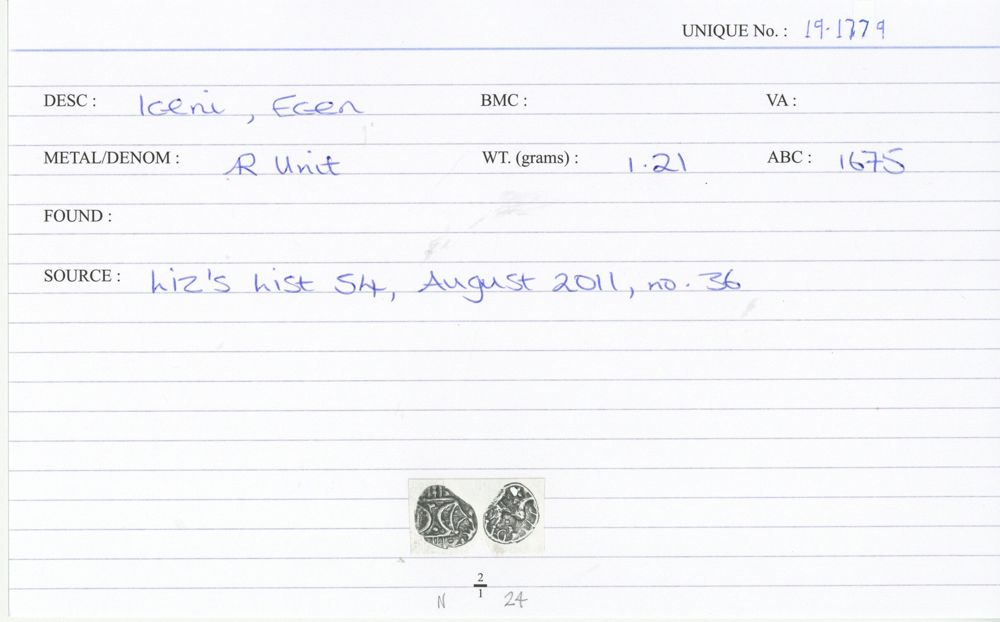 UNIQUE No. : 19-1779
DESC : Iceni, Ecen BMC : VA :
METAL/DENOM : AR Unit WT. (grams) : 1.21 ABC : 1675
FOUND :
SOURCE : Liz's List 54, August 2011, no. 36
2
1
N 24